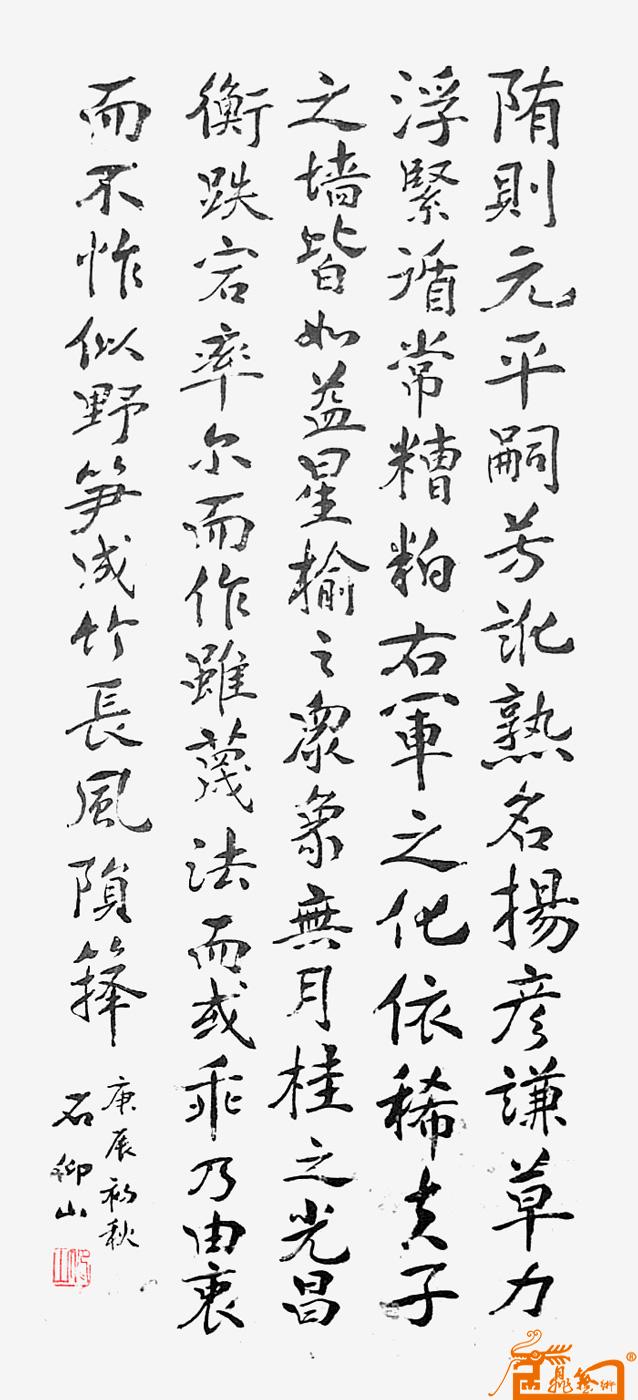 陏則元平嗣芳訛熟名揚彦謙草力
浮緊循常糟粕右軍之化依稀夫子
之墙皆如益星榆之衆象無月桂之光昌
衡跌宕率尔而作雖蔑法而或乖乃由衷
而不怍似野笋成竹長風隕箨
庚辰初秋
石仰山